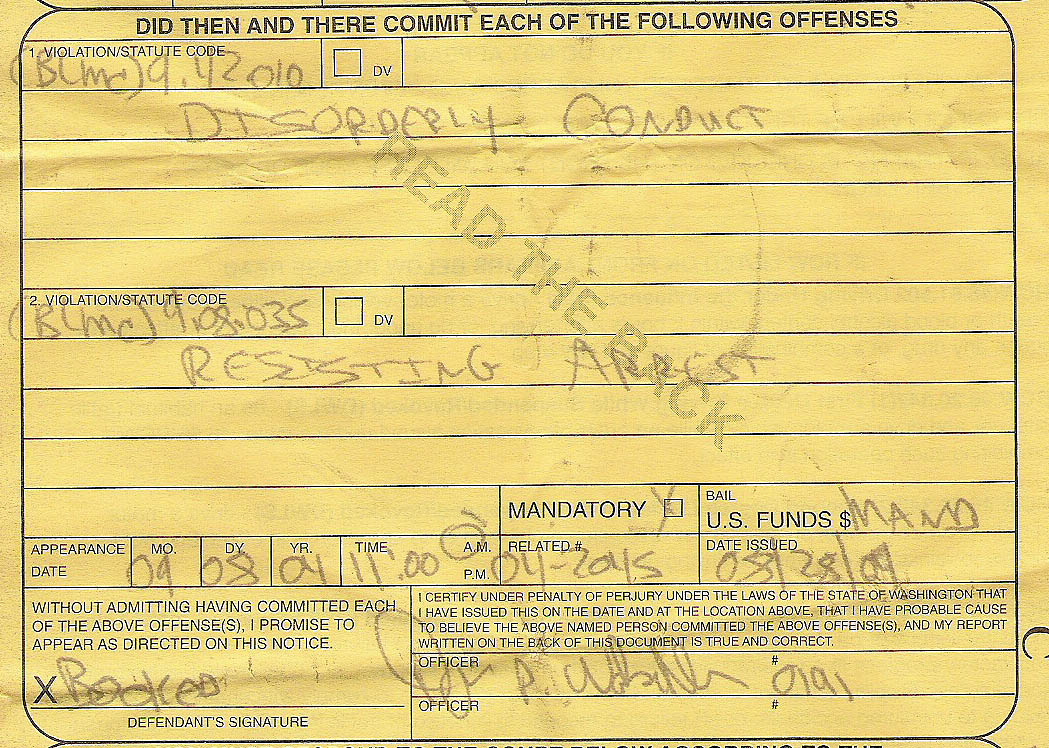 DID THEN AND THERE COMMIT EACH OF THE FOLLOWING OFFENSES
1. VIOLATION/STATUTE CODE
(BLMC) 9.42010
DV
DISORDERLY CONDUCT
READ THE BACK
2. VIOLATION/STATUTE CODE
(BLMC) 9.08.035
DV
RESISTING ARREST
MANDATORY X
BAIL
U.S. FUNDS $ MAND
APPEARANCE DATE
MO. 09
DY. 08
YR. 04
TIME 11:00
A.M.
P.M.
RELATED # 04-2045
DATE ISSUED
08/28/04
WITHOUT ADMITTING HAVING COMMITTED EACH
OF THE ABOVE OFFENSE(S), I PROMISE TO
APPEAR AS DIRECTED ON THIS NOTICE.
X Booked
DEFENDANT'S SIGNATURE
I CERTIFY UNDER PENALTY OF PERJURY UNDER THE LAWS OF THE STATE OF WASHINGTON THAT
I HAVE ISSUED THIS ON THE DATE AND AT THE LOCATION ABOVE, THAT I HAVE PROBABLE CAUSE
TO BELIEVE THE ABOVE NAMED PERSON COMMITTED THE ABOVE OFFENSE(S), AND MY REPORT
WRITTEN ON THE BACK OF THIS DOCUMENT IS TRUE AND CORRECT.
OFFICER
#
OFFICER
#